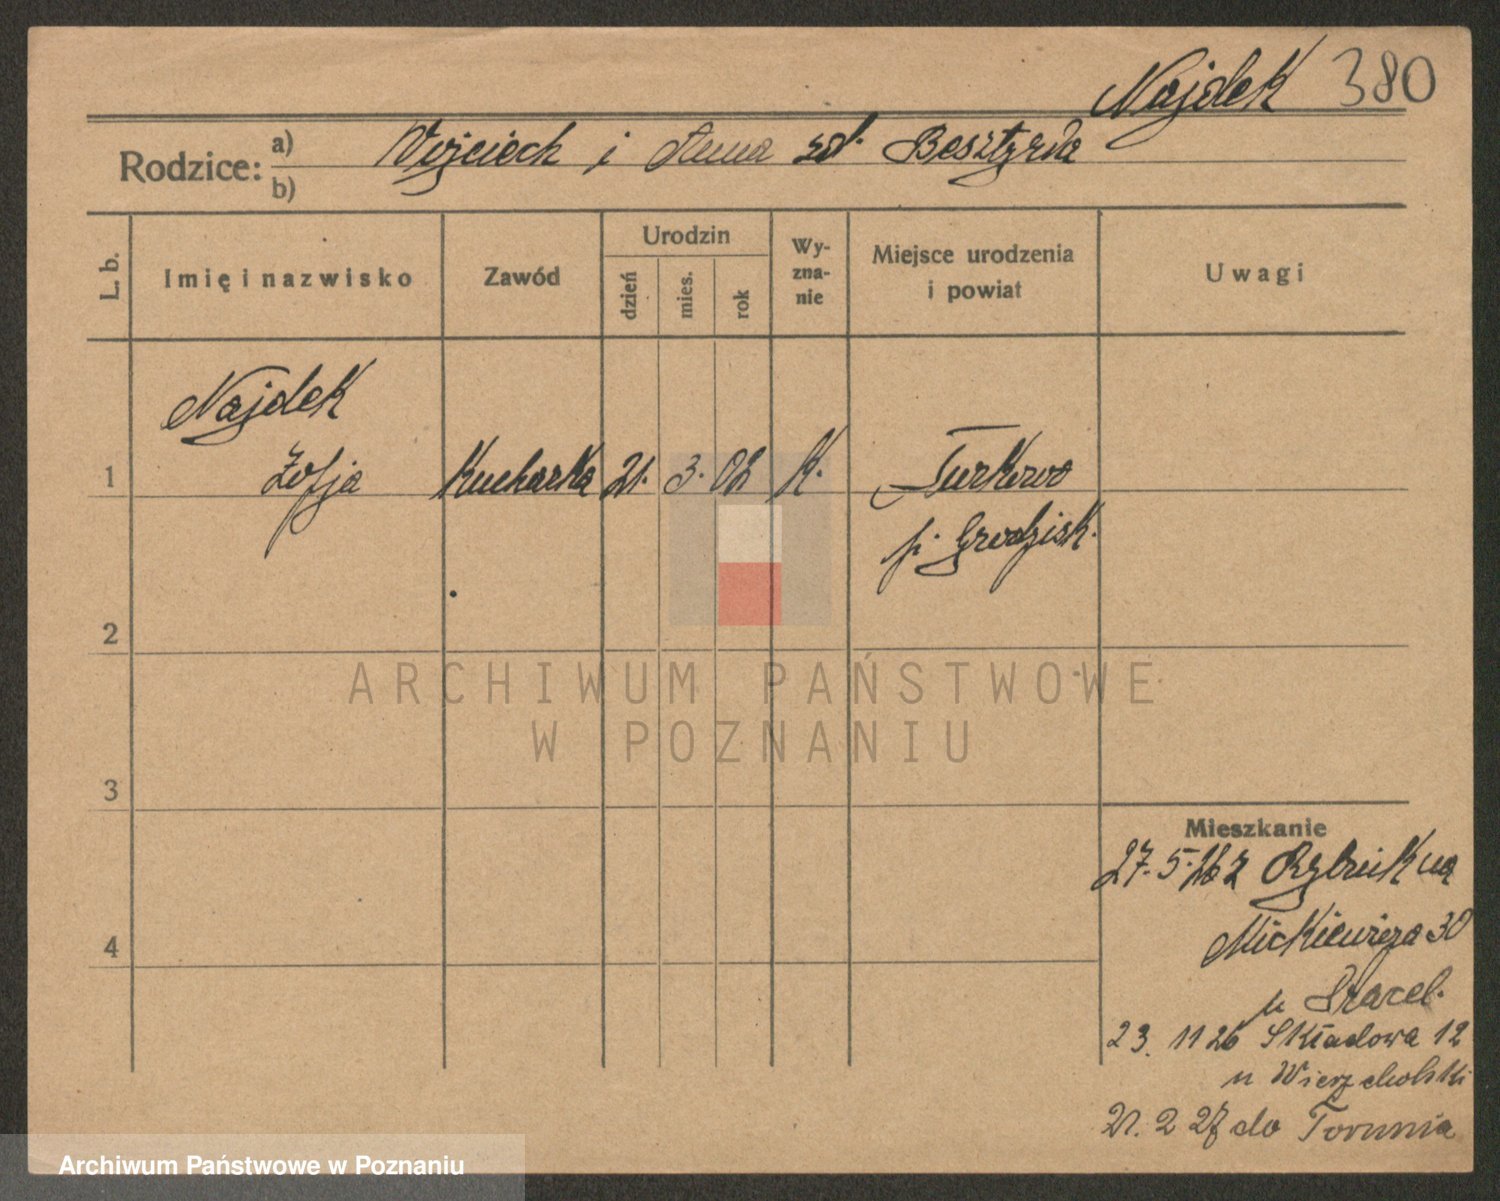 Najdek 380
Rodzice: a) Wojciech i Anna zd. Besztyrda
b)
L. b.
Imię i nazwisko
Zawód
Urodzin
dzień
mies.
rok
Wy-
zna-
nie
Miejsce urodzenia
i powiat
Uwagi
Najdek
1 Zofja Kucharka 21. 3. 02 K. Turkowo
p. Grodzisk.
2
3
4
Mieszkanie
27. 5. 26 z Rybnik na
Mickiewicza 30
u
23. 11 26 Składowa 12
u Wierzcholski
21. 2 27 do Torunia
ARCHIWUM PAŃSTWOWE
W POZNANIU
Archiwum Państwowe w Poznaniu